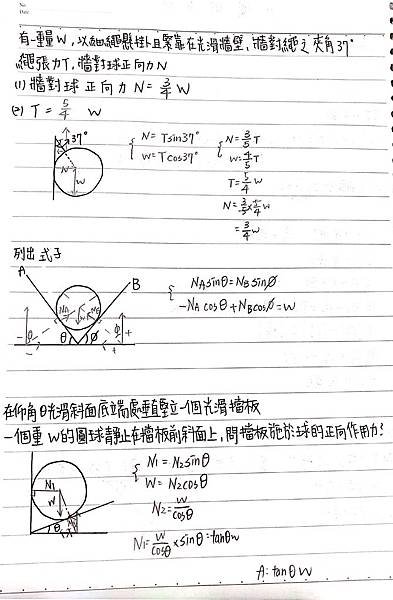 No.
Date
有一重量W,以細繩懸掛且緊靠在光滑牆壁,牆對繩之夾角37°
繩張力T,牆對球正向力N
(1) 牆對球正向力 N= 3/4 W
(2) T= 5/4 W
37°
N
W
{ N=Tsin37°
W=Tcos37°
{ N=3/5 T
W=4/5 T
T=5/4 W
N=3/5×5/4 W
=3/4 W
列出式子
A
B
NA
NB
θ
θ
ϕ
ϕ
-
+
-
+
{ NA sinθ=NB sinϕ
-NA cosθ+NB cosϕ=W
在仰角θ光滑斜面底端處垂直豎立一個光滑擋板
一個重W的圓球靜止在擋板前斜面上,問擋板施於球的正向作用力?
N1
W
θ
{ N1=N2sinθ
W=N2cosθ
N2=W/cosθ
N1=W/cosθ×sinθ=tanθW
A:tanθW